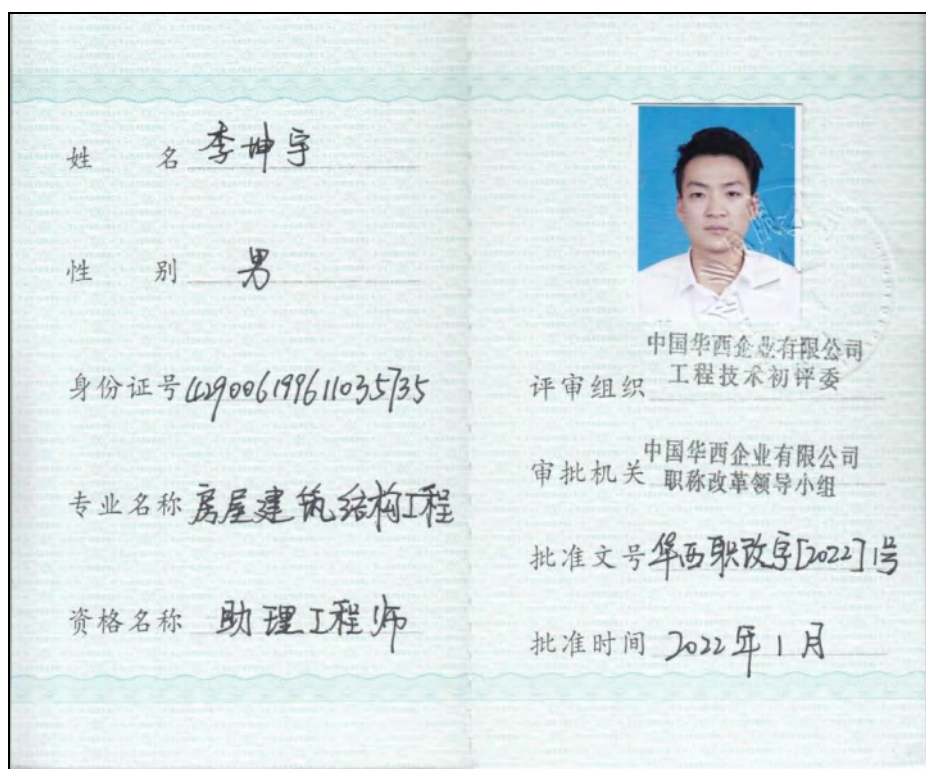 姓 名 李坤宇
性 别 男
身份证号 429006199611035735
专业名称 房屋建筑结构工程
资格名称 助理工程师
中国华西企业有限公司
评审组织 工程技术初评委
中国华西企业有限公司
审批机关 职称改革领导小组
批准文号 华西职改字[2022]1号
批准时间 2022年1月